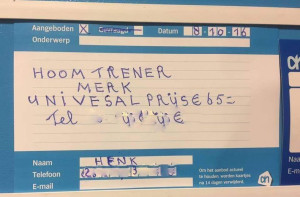 Aangeboden X Datum 8-10-16
Onderwerp
HOOM TRENER
MERK
UNIVESAL PRIJS € 65=
Tel
Naam HENK
Telefoon
E-mail
Ons het aanbod actueel
te houden, worden kaartjes
na 14 dagen verwijderd.
ah